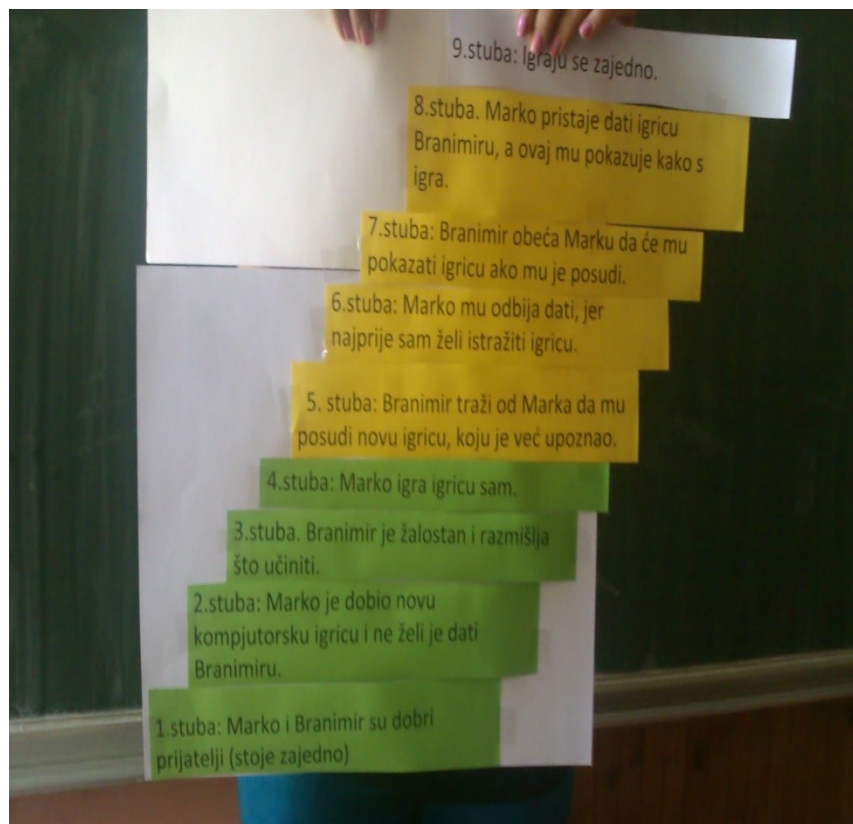 9.stuba: Igraju se zajedno.
8.stuba. Marko pristaje dati igricu
Branimiru, a ovaj mu pokazuje kako s
igra.
7.stuba: Branimir obeća Marku da će mu
pokazati igricu ako mu je posudi.
6.stuba: Marko mu odbija dati, jer
najprije sam želi istražiti igricu.
5. stuba: Branimir traži od Marka da mu
posudi novu igricu, koju je već upoznao.
4.stuba: Marko igra igricu sam.
3.stuba. Branimir je žalostan i razmišlja
što učiniti.
2.stuba: Marko je dobio novu
kompjutorsku igricu i ne želi je dati
Branimiru.
1.stuba: Marko i Branimir su dobri
prijatelji (stoje zajedno)